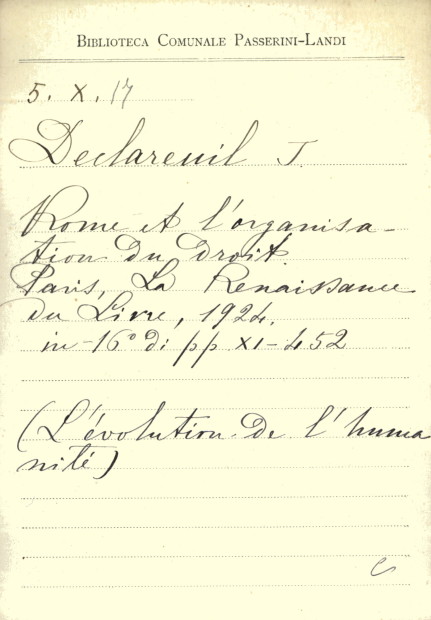 BIBLIOTECA COMUNALE PASSERINI-LANDI
5. X. 17
Declareuil J.
Rome et l'organisa-
tion du droit.
Paris, La Renaissance
du Livre, 1924.
in-16° di pp XI-452
(L'évolution de l'huma
nité)